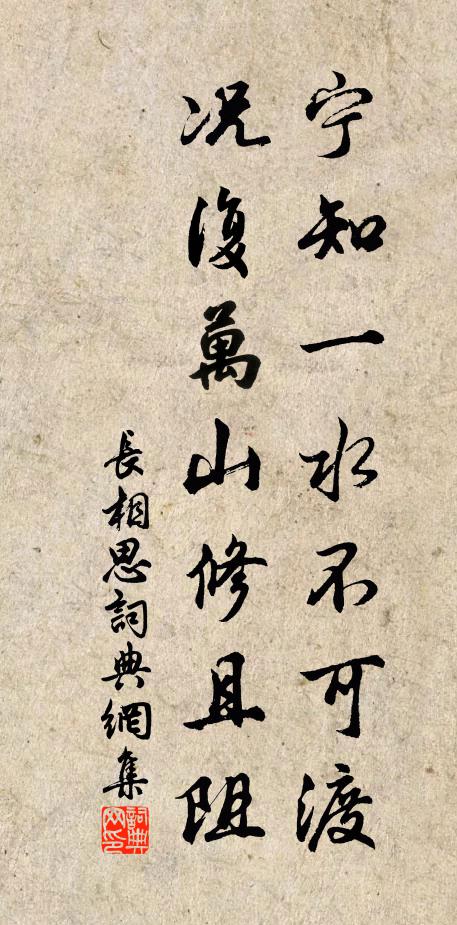 宁知一水不可渡
况復萬山修且阻
長相思詞典網集
詞典
网印